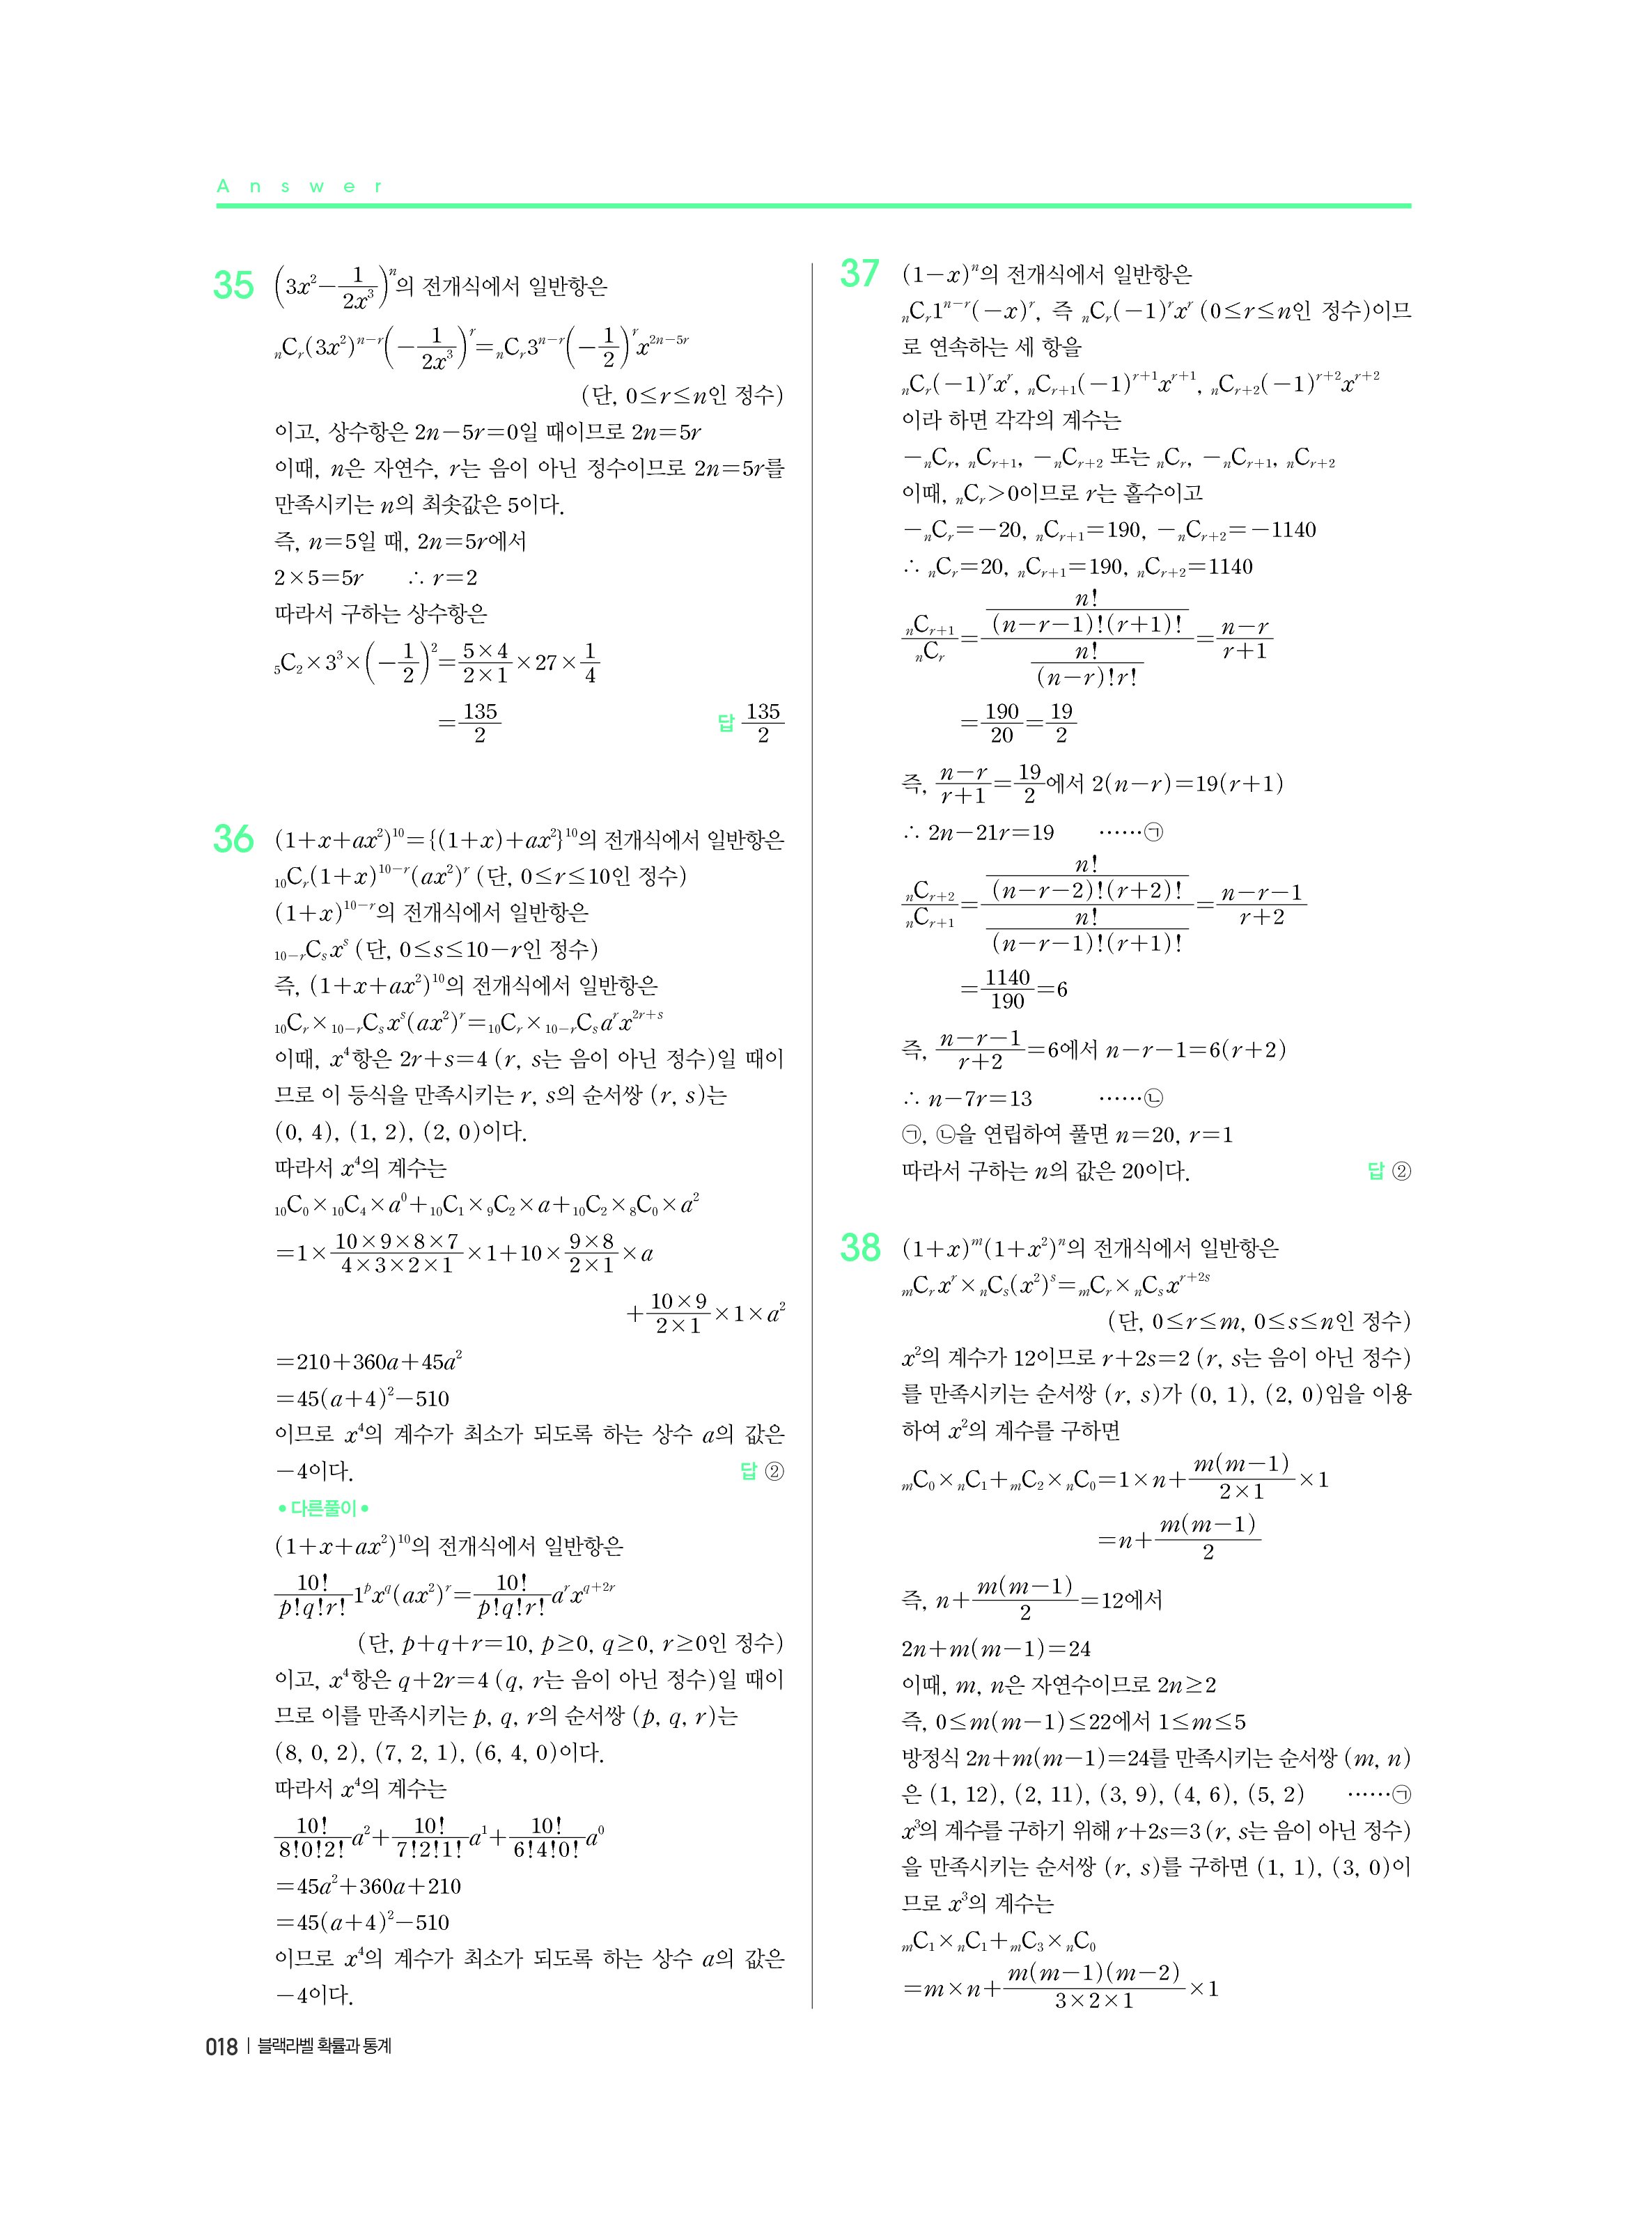 Answer
35 (3x²−1/(2x³))ⁿ의 전개식에서 일반항은
ₙCᵣ(3x²)ⁿ⁻ʳ(−1/(2x³))ʳ=ₙCᵣ3ⁿ⁻ʳ(−1/2)ʳx²ⁿ⁻⁵ʳ
(단, 0≤r≤n인 정수)
이고, 상수항은 2n−5r=0일 때이므로 2n=5r
이때, n은 자연수, r는 음이 아닌 정수이므로 2n=5r를
만족시키는 n의 최솟값은 5이다.
즉, n=5일 때, 2n=5r에서
2×5=5r ∴ r=2
따라서 구하는 상수항은
₅C₂×3³×(−1/2)²=(5×4)/(2×1)×27×1/4
=135/2 답 135/2
36 (1+x+ax²)¹⁰={(1+x)+ax²}¹⁰의 전개식에서 일반항은
₁₀Cᵣ(1+x)¹⁰⁻ʳ(ax²)ʳ (단, 0≤r≤10인 정수)
(1+x)¹⁰⁻ʳ의 전개식에서 일반항은
₁₀₋ᵣCₛxˢ (단, 0≤s≤10−r인 정수)
즉, (1+x+ax²)¹⁰의 전개식에서 일반항은
₁₀Cᵣ×₁₀₋ᵣCₛxˢ(ax²)ʳ=₁₀Cᵣ×₁₀₋ᵣCₛaʳx²ʳ⁺ˢ
이때, x⁴항은 2r+s=4 (r, s는 음이 아닌 정수)일 때이
므로 이 등식을 만족시키는 r, s의 순서쌍 (r, s)는
(0, 4), (1, 2), (2, 0)이다.
따라서 x⁴의 계수는
₁₀C₀×₁₀C₄×a⁰+₁₀C₁×₉C₂×a+₁₀C₂×₈C₀×a²
=1×(10×9×8×7)/(4×3×2×1)×1+10×(9×8)/(2×1)×a
+(10×9)/(2×1)×1×a²
=210+360a+45a²
=45(a+4)²−510
이므로 x⁴의 계수가 최소가 되도록 하는 상수 a의 값은
−4이다. 답 ②
•다른풀이•
(1+x+ax²)¹⁰의 전개식에서 일반항은
10!/(p!q!r!)1ᵖx^q(ax²)ʳ=10!/(p!q!r!)aʳx^(q+2r)
(단, p+q+r=10, p≥0, q≥0, r≥0인 정수)
이고, x⁴항은 q+2r=4 (q, r는 음이 아닌 정수)일 때이
므로 이를 만족시키는 p, q, r의 순서쌍 (p, q, r)는
(8, 0, 2), (7, 2, 1), (6, 4, 0)이다.
따라서 x⁴의 계수는
10!/(8!0!2!)a²+10!/(7!2!1!)a¹+10!/(6!4!0!)a⁰
=45a²+360a+210
=45(a+4)²−510
이므로 x⁴의 계수가 최소가 되도록 하는 상수 a의 값은
−4이다.
37 (1−x)ⁿ의 전개식에서 일반항은
ₙCᵣ1ⁿ⁻ʳ(−x)ʳ, 즉 ₙCᵣ(−1)ʳxʳ (0≤r≤n인 정수)이므
로 연속하는 세 항을
ₙCᵣ(−1)ʳxʳ, ₙCᵣ₊₁(−1)ʳ⁺¹xʳ⁺¹, ₙCᵣ₊₂(−1)ʳ⁺²xʳ⁺²
이라 하면 각각의 계수는
−ₙCᵣ, ₙCᵣ₊₁, −ₙCᵣ₊₂ 또는 ₙCᵣ, −ₙCᵣ₊₁, ₙCᵣ₊₂
이때, ₙCᵣ>0이므로 r는 홀수이고
−ₙCᵣ=−20, ₙCᵣ₊₁=190, −ₙCᵣ₊₂=−1140
∴ ₙCᵣ=20, ₙCᵣ₊₁=190, ₙCᵣ₊₂=1140
ₙCᵣ₊₁/ₙCᵣ=(n!/((n−r−1)!(r+1)!))/(n!/((n−r)!r!))=(n−r)/(r+1)
=190/20=19/2
즉, (n−r)/(r+1)=19/2에서 2(n−r)=19(r+1)
∴ 2n−21r=19 ……㉠
ₙCᵣ₊₂/ₙCᵣ₊₁=(n!/((n−r−2)!(r+2)!))/(n!/((n−r−1)!(r+1)!))=(n−r−1)/(r+2)
=1140/190=6
즉, (n−r−1)/(r+2)=6에서 n−r−1=6(r+2)
∴ n−7r=13 ……㉡
㉠, ㉡을 연립하여 풀면 n=20, r=1
따라서 구하는 n의 값은 20이다. 답 ②
38 (1+x)ᵐ(1+x²)ⁿ의 전개식에서 일반항은
ₘCᵣxʳ×ₙCₛ(x²)ˢ=ₘCᵣ×ₙCₛxʳ⁺²ˢ
(단, 0≤r≤m, 0≤s≤n인 정수)
x²의 계수가 12이므로 r+2s=2 (r, s는 음이 아닌 정수)
를 만족시키는 순서쌍 (r, s)가 (0, 1), (2, 0)임을 이용
하여 x²의 계수를 구하면
ₘC₀×ₙC₁+ₘC₂×ₙC₀=1×n+m(m−1)/(2×1)×1
=n+m(m−1)/2
즉, n+m(m−1)/2=12에서
2n+m(m−1)=24
이때, m, n은 자연수이므로 2n≥2
즉, 0≤m(m−1)≤22에서 1≤m≤5
방정식 2n+m(m−1)=24를 만족시키는 순서쌍 (m, n)
은 (1, 12), (2, 11), (3, 9), (4, 6), (5, 2) ……㉠
x³의 계수를 구하기 위해 r+2s=3 (r, s는 음이 아닌 정수)
을 만족시키는 순서쌍 (r, s)를 구하면 (1, 1), (3, 0)이
므로 x³의 계수는
ₘC₁×ₙC₁+ₘC₃×ₙC₀
=m×n+m(m−1)(m−2)/(3×2×1)×1
018 | 블랙라벨 확률과 통계